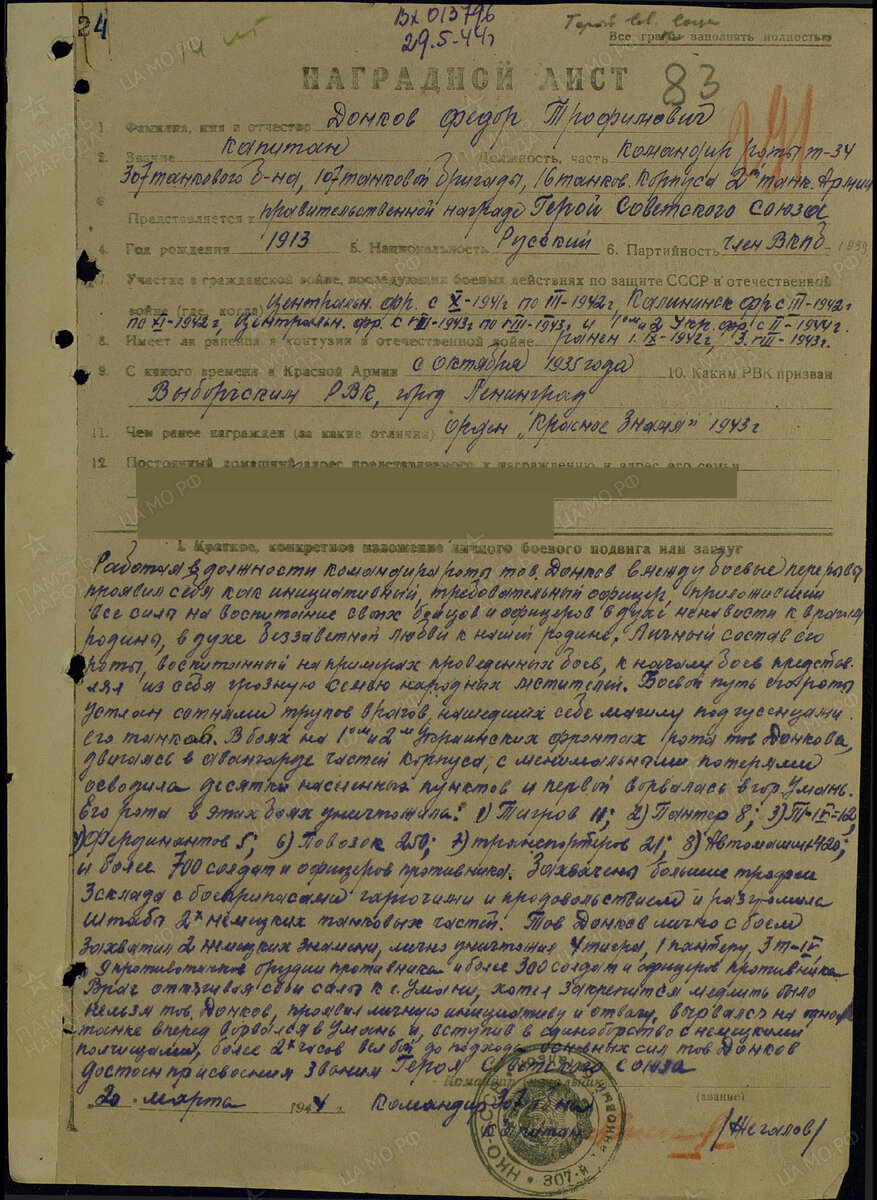 4
Вх 013796
29.5.44г
Герой Сов. Союза
Все графы заполнить полностью
НАГРАДНОЙ ЛИСТ 83
291
1. Фамилия, имя и отчество Донков Федор Трофимович
2. Звание капитан Должность, часть командир роты Т-34
307 танкового б-на, 107 танковой бригады, 16 танков. корпуса 2ой танк. Армии
Представляется к правительственной награде Герой Советского Союза
4. Год рождения 1913 5. Национальность Русский 6. Партийность член ВКПб 1939
7. Участие в гражданской войне, последующих боевых действиях по защите СССР и отечественной
войне (где, когда) Центральн. фр. с X-1941г по III-1942г, Калининск фр с III-1942г
по XI-1942г, Центральн. фр. с III-1943г по VIII-1943г и 1ом и 2 Укр. фр. с II-1944г.
8. Имеет ли ранения и контузии в отечественной войне ранен 1.IX-1942г, 13.VIII-1943г.
9. С какого времени в Красной Армии с октября 1935 года 10. Каким РВК призван
Выборгским РВК, город Ленинград
11. Чем ранее награжден (за какие отличия) Орден "Красное Знамя" 1943г
12. Постоянный домашний адрес представляемого к награждению и адрес его семьи
I. Краткое, конкретное изложение личного боевого подвига или заслуг
Работая в должности командира роты тов. Донков в между боевые перерывы
проявил себя как инициативный, требовательный офицер, приложивший
все силы на воспитание своих бойцов и офицеров в духе ненависти к врагам
родины, в духе беззаветной любви к нашей родине. Личный состав его
роты, воспитанный на примерах проведенных боев, к началу боев представ-
лял из себя грозную семью народных мстителей. Боевой путь его роты
устлан сотнями трупов врагов, нашедших себе могилу под гусеницами
его танков. В боях на 1ом и 2м Украинских фронтах рота тов Донкова,
двигаясь в авангарде частей корпуса, с минимальными потерями
освободила десятки населенных пунктов и первой ворвалась в гор. Умань.
Его рота в этих боях уничтожила: 1) Тигров 11; 2) Пантер 8; 3) Т-IV=12;
Фердинантов 5; 6) Повозок 250; 7) транспортеров 21; 8) Автомашин 420;
и более 700 солдат и офицеров противника. Захвачены большие трофеи
3 склада с боеприпасами горючим и продовольствием и разгромила
штабы 2х немецких танковых частей. Тов Донков лично с боем
захватил 2 немецких знамени, лично уничтожил 4 тигра, 1 пантеру, 3 Т-IV
9 противотанков орудий противника и более 300 солдат и офицеров противника.
Враг оттягивая свои силы к г. Умани, хотел закрепится медлить было
нельзя тов. Донков, проявил личную инициативу и отвагу, вырвался на одном
танке вперед ворвался в Умань и, вступив в единоборство с немецкими
полчищами, более 2х часов вел бой до подхода основных сил тов Донков
достоин присвоения звания Героя Советского Союза
20 марта 1944 г. Командир 307 б-на
капитан /Жегалов/
(звание)
НКО-СССР
307-й